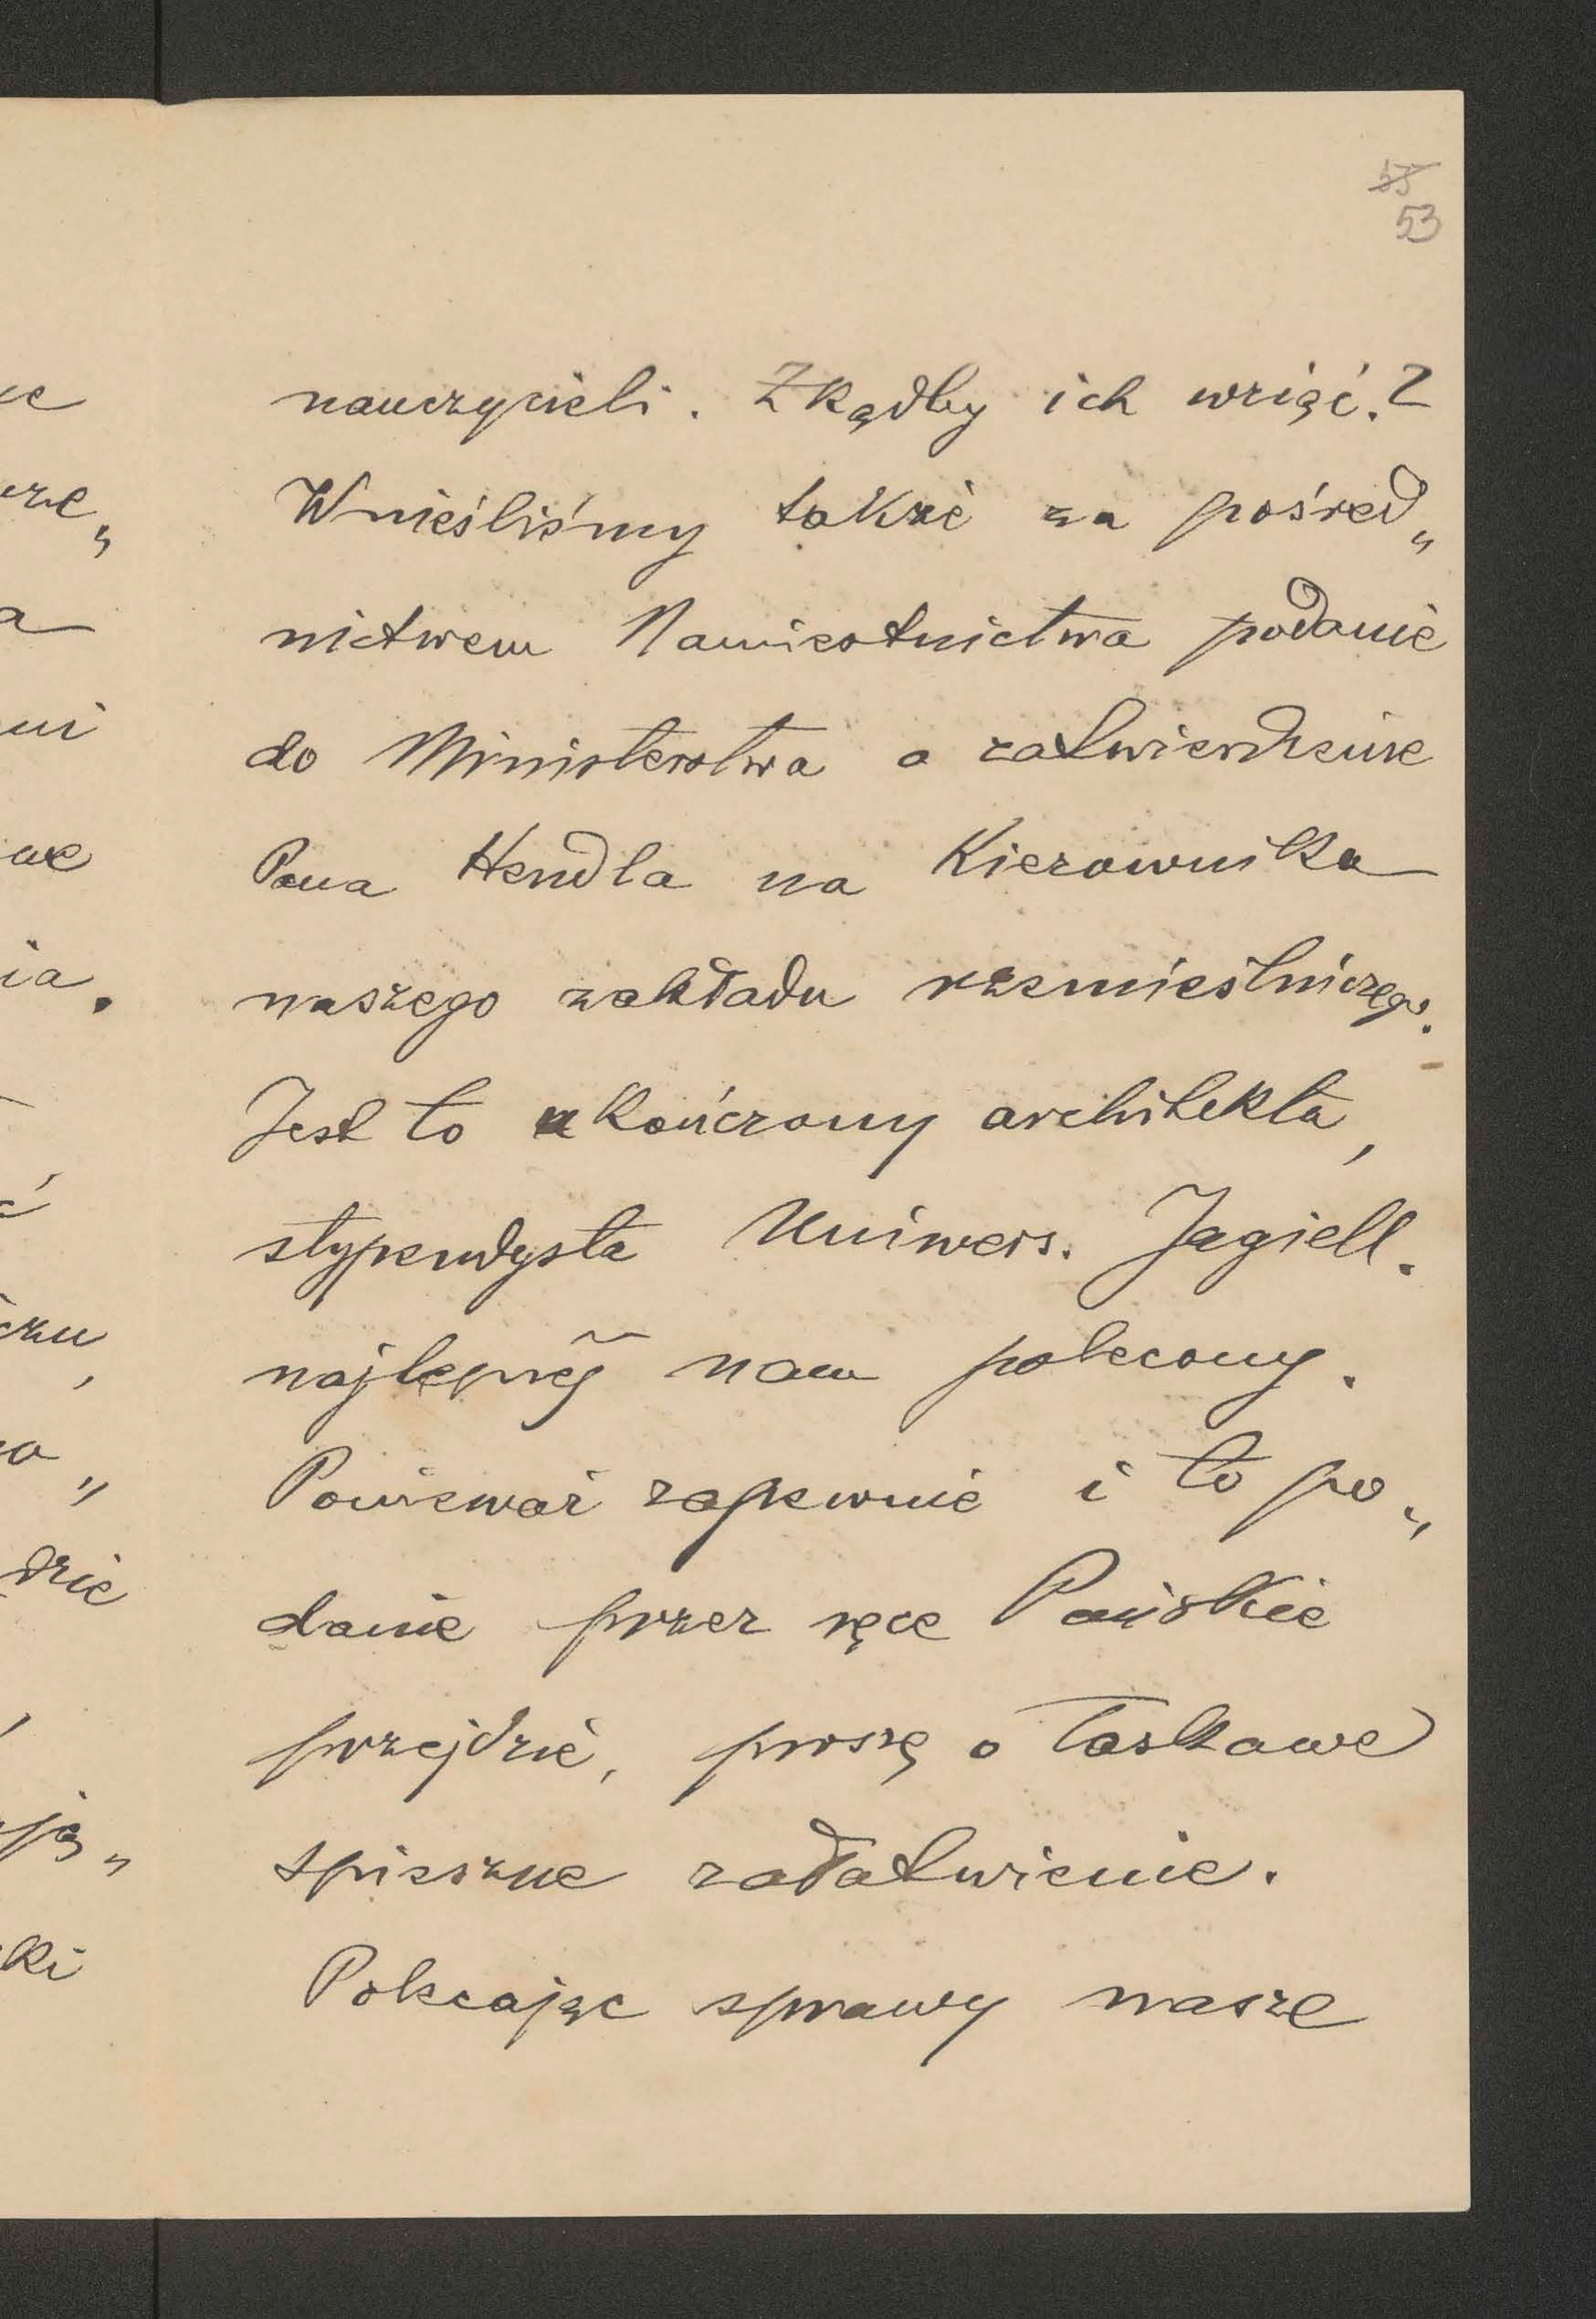 55
53
nauczycieli. Zkądby ich wziąć.?
Wnieśliśmy także za pośred„
nictwem Namiestnictwa podanie
do Ministerstwa o zatwierdzenie
Pana Hendla na Kierownika
naszego zakładu rzemieślniczego.
Jest to ukończony architekta,
stypendysta Uniwers. Jagiell.
najlepiéj nam polecony.
Ponieważ zapewnie i to po„
danie przez ręce Pańskie
przejdzie, proszę o łaskawe
spieszne załatwienie.
Polecając sprawy nasze
ce
rze„
a
mi
we
ia.
ć
czu,
o„
dzie
ją„
ki